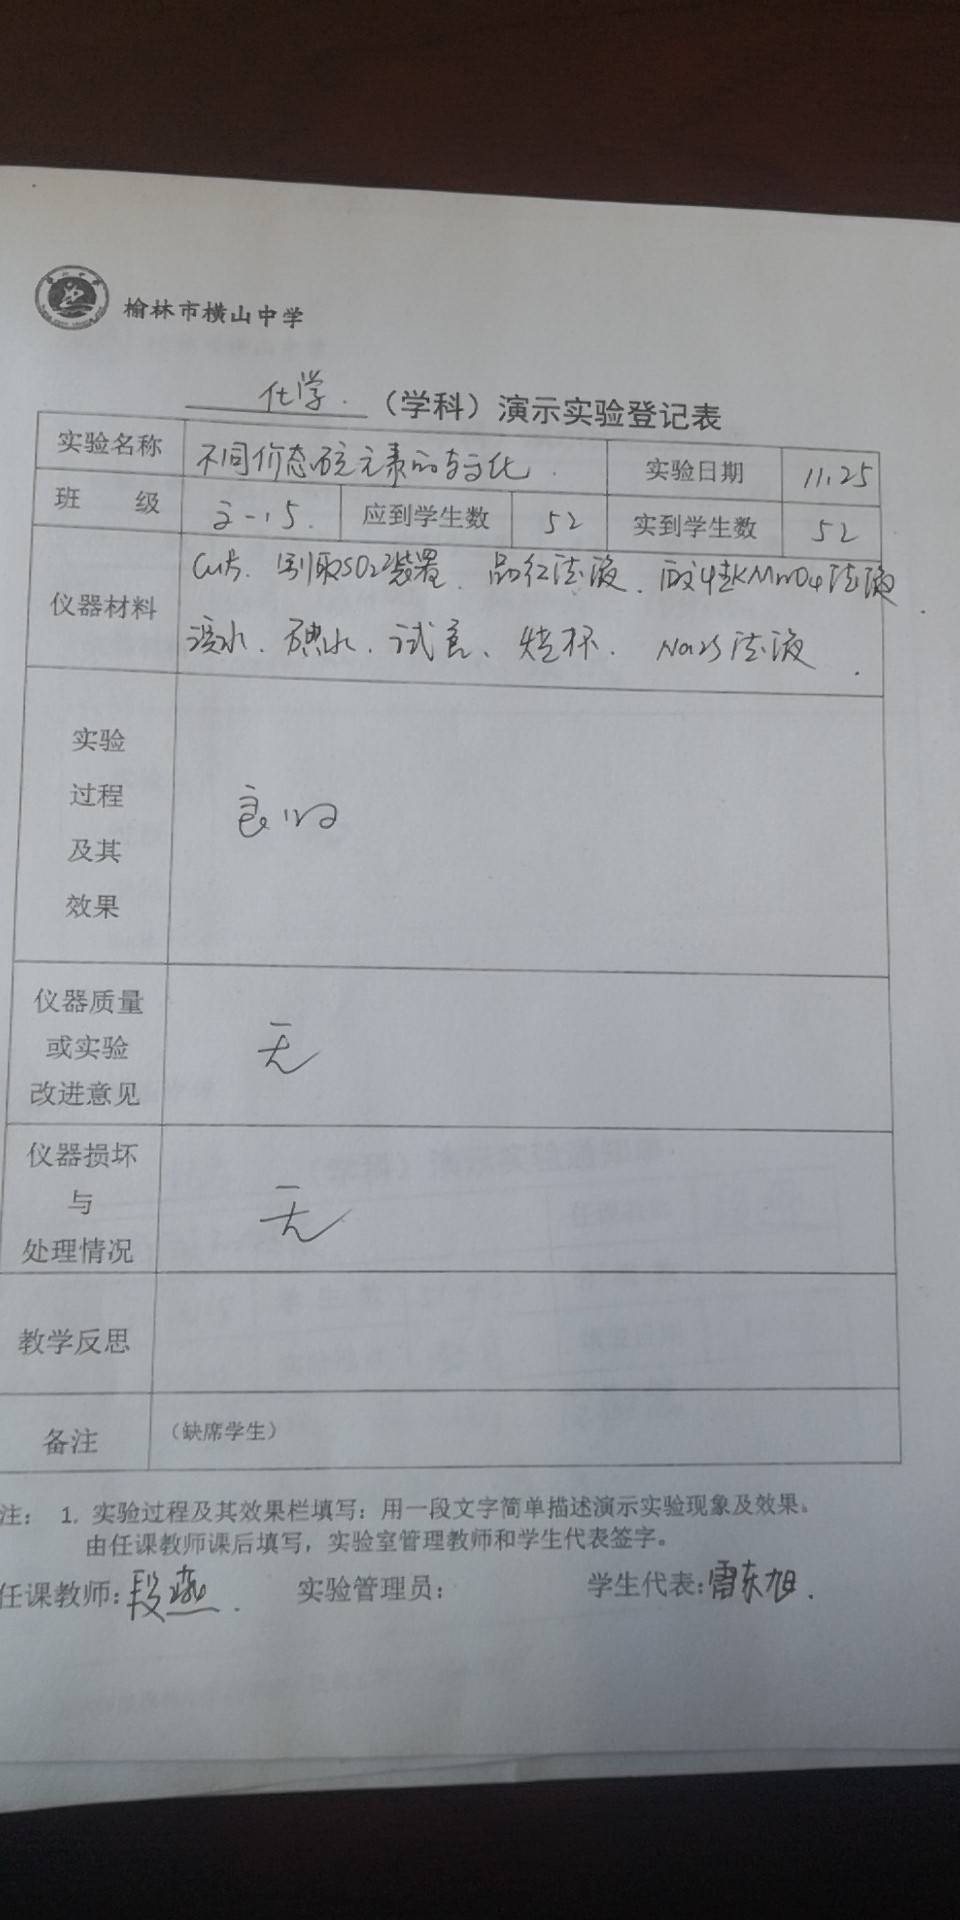 榆林市横山中学
化学.（学科）演示实验登记表
实验名称 不同价态硫元素的转化. 实验日期 11.25
班 级 高一.5. 应到学生数 52 实到学生数 52
仪器材料 Cu片. 制取SO2装置. 品红溶液. 酸性KMnO4溶液.
溴水. 碘水. 试管、烧杯. Na2S溶液.
实验
过程
及其
效果
良好
仪器质量
或实验
改进意见
无
仪器损坏
与
处理情况
无
教学反思
备注 （缺席学生）
注： 1. 实验过程及其效果栏填写：用一段文字简单描述演示实验现象及效果。
由任课教师课后填写，实验室管理教师和学生代表签字。
任课教师：段燕. 实验管理员： 学生代表：雷东旭.